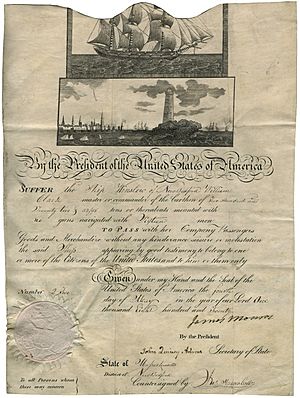 By the President of the United States of America
SUFFER the Ship Winslow of New Bedford William
master or commander of the burthen of
tons or thereabouts mounted with
no guns navigated with men
TO PASS with her Company Passengers
Goods and Merchandize without any hinderance seisure or molestation
the said Ship appearing by good testimony to belong to one
or more of the Citizens of the United States and to him or them only
Given under my Hand and the Seal of the
United States of America the
day of May in the year of our Lord One
thousand Eight hundred and Twenty
James Monroe
By the President
John Quincy Adams Secretary of State
Number
State of Massachusetts
District of New Bedford
To all Persons whom
these may concern
Countersigned by